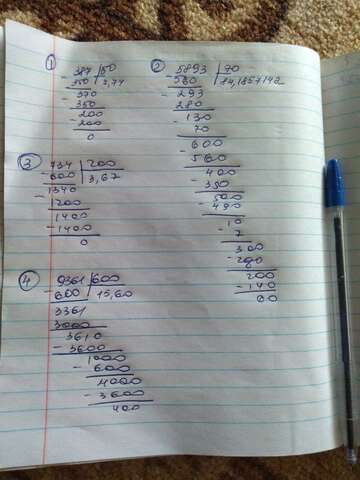 ①
- 387 | 50
350 | 7,74
- 370
- 350
- 200
- 200
0
②
- 5893 | 70
560 | 84,1857142
- 293
280
- 130
70
- 600
- 560
400
- 350
500
- 490
10
- 7
300
- 280
200
- 140
60
③
734 | 200
- 600 | 3,67
- 1340
1200
1400
- 1400
0
④
- 9361 | 600
600 | 15,60
3361
3000
3610
- 3600
1000
- 600
4000
- 3600
400